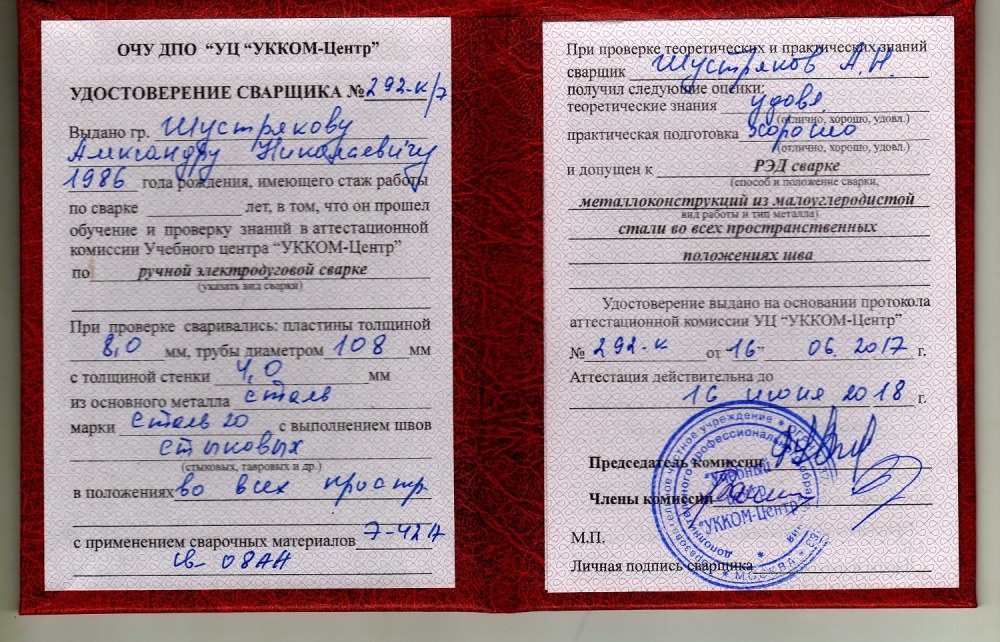 ОЧУ ДПО “УЦ “УККОМ-Центр”
УДОСТОВЕРЕНИЕ СВАРЩИКА № 292-к/7
Выдано гр. Шустрякову
Александру Николаевичу
1986 года рождения, имеющего стаж работы
по сварке лет, в том, что он прошел
обучение и проверку знаний в аттестационной
комиссии Учебного центра “УККОМ-Центр”
по ручной электродуговой сварке
(указать вид сварки)
При проверке сваривались: пластины толщиной
8,0 мм, трубы диаметром 108 мм
с толщиной стенки 4,0 мм
из основного металла сталь
марки сталь 20 с выполнением швов
стыковых
(стыковых, тавровых и др.)
в положениях во всех простр.
с применением сварочных материалов Э-42А
св 08АА
При проверке теоретических и практических знаний
сварщик Шустряков А.Н.
получил следующие оценки:
теоретические знания удовл.
(отлично, хорошо, удовл.)
практическая подготовка хорошо
(отлично, хорошо, удовл.)
и допущен к РЭД сварке
(способ и положение сварки,
металлоконструкций из малоуглеродистой
вид работы и тип металла)
стали во всех пространственных
положениях шва
Удостоверение выдано на основании протокола
аттестационной комиссии УЦ “УККОМ-Центр”
№ 292-к от “16” 06. 2017 г.
Аттестация действительна до
16 июня 2018 г.
Председатель комиссии
Члены комиссии
М.П.
Личная подпись сварщика
"Учебный
"УККОМ-Центр"
* МОСКВА *